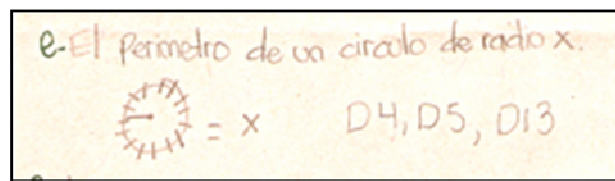 e. El perimetro de un circulo de radio x.
= x D4, D5, D13